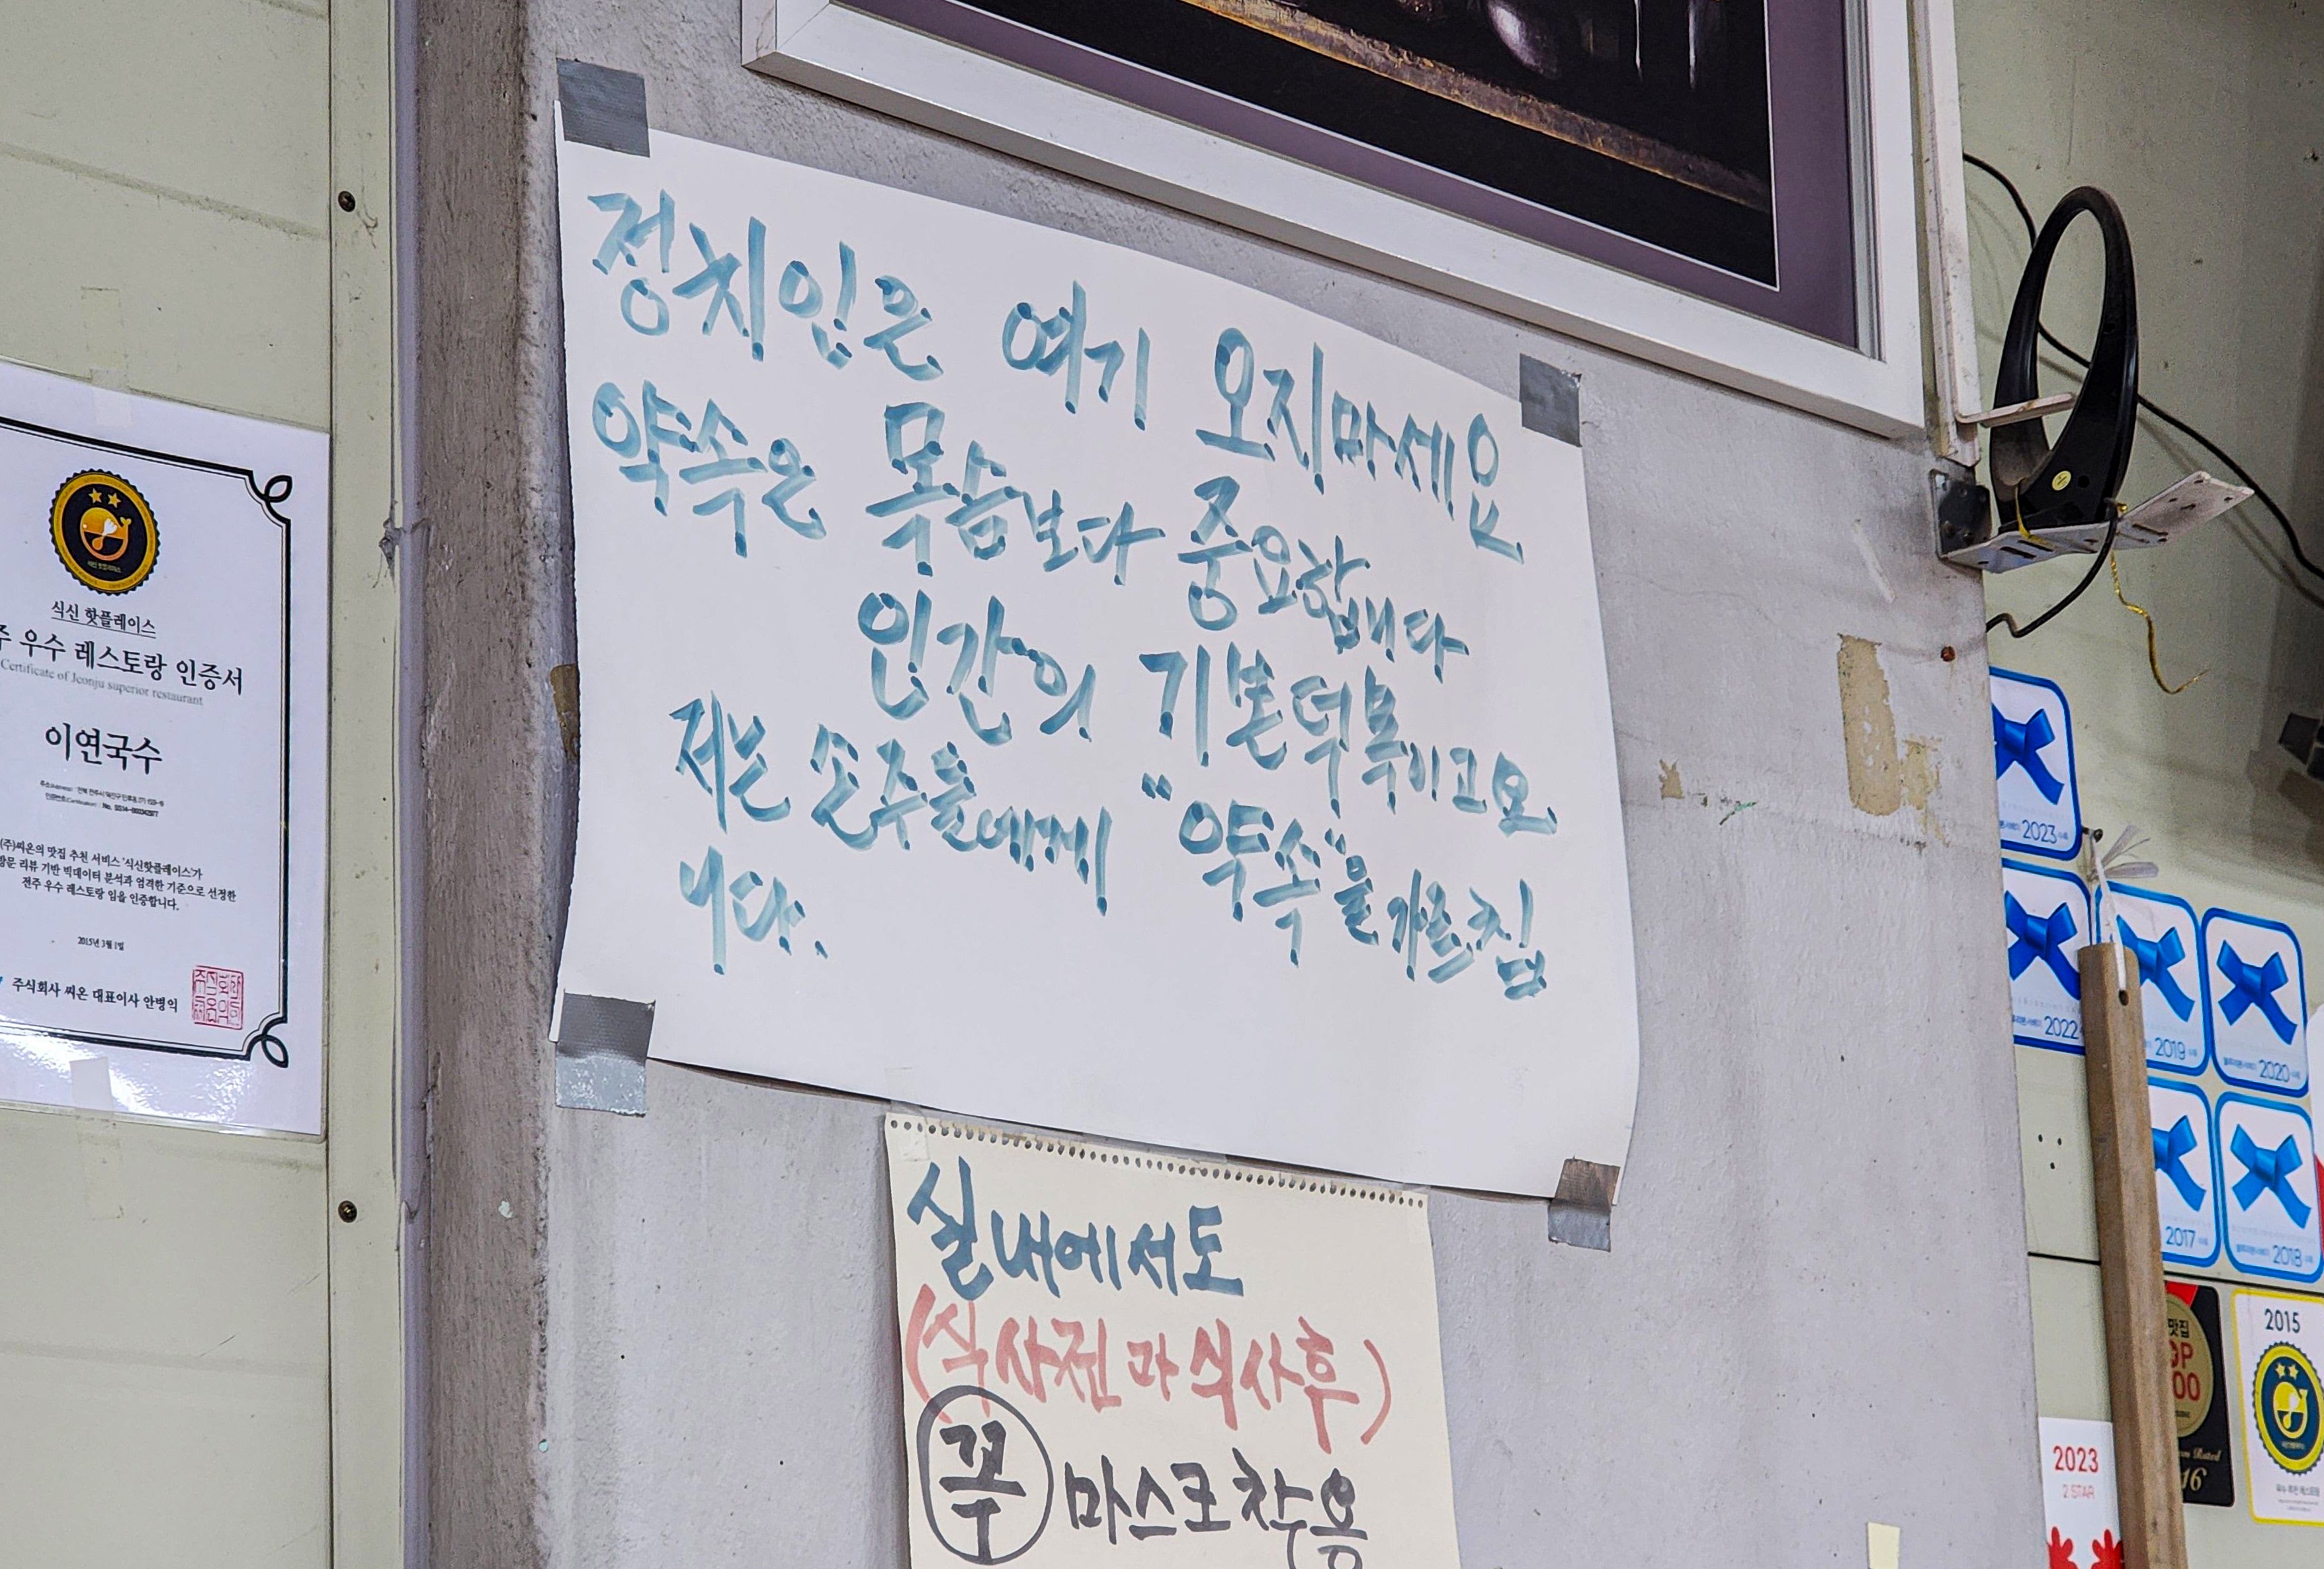 정치인은 여기 오지마세요
약속은 목숨보다 중요합니다
인간의 기본덕목이고요
저는 손주들에게 "약속"을 가르칩
니다.
실내에서도
(식사전과 식사후)
꼭 마스크 착용
식신 핫플레이스
주 우수 레스토랑 인증서
Certificate of Jeonju superior restaurant
이연국수
(주)씨온의 맛집 추천 서비스 '식신핫플레이스'가
방문 리뷰 기반 빅데이터 분석과 엄격한 기준으로 선정한
전주 우수 레스토랑 임을 인증합니다.
2015년 3월 1일
주식회사 씨온 대표이사 안병익
2023
2022
2019
2020
2017
2018
맛집
OP
00
16
2015
2023
2 STAR